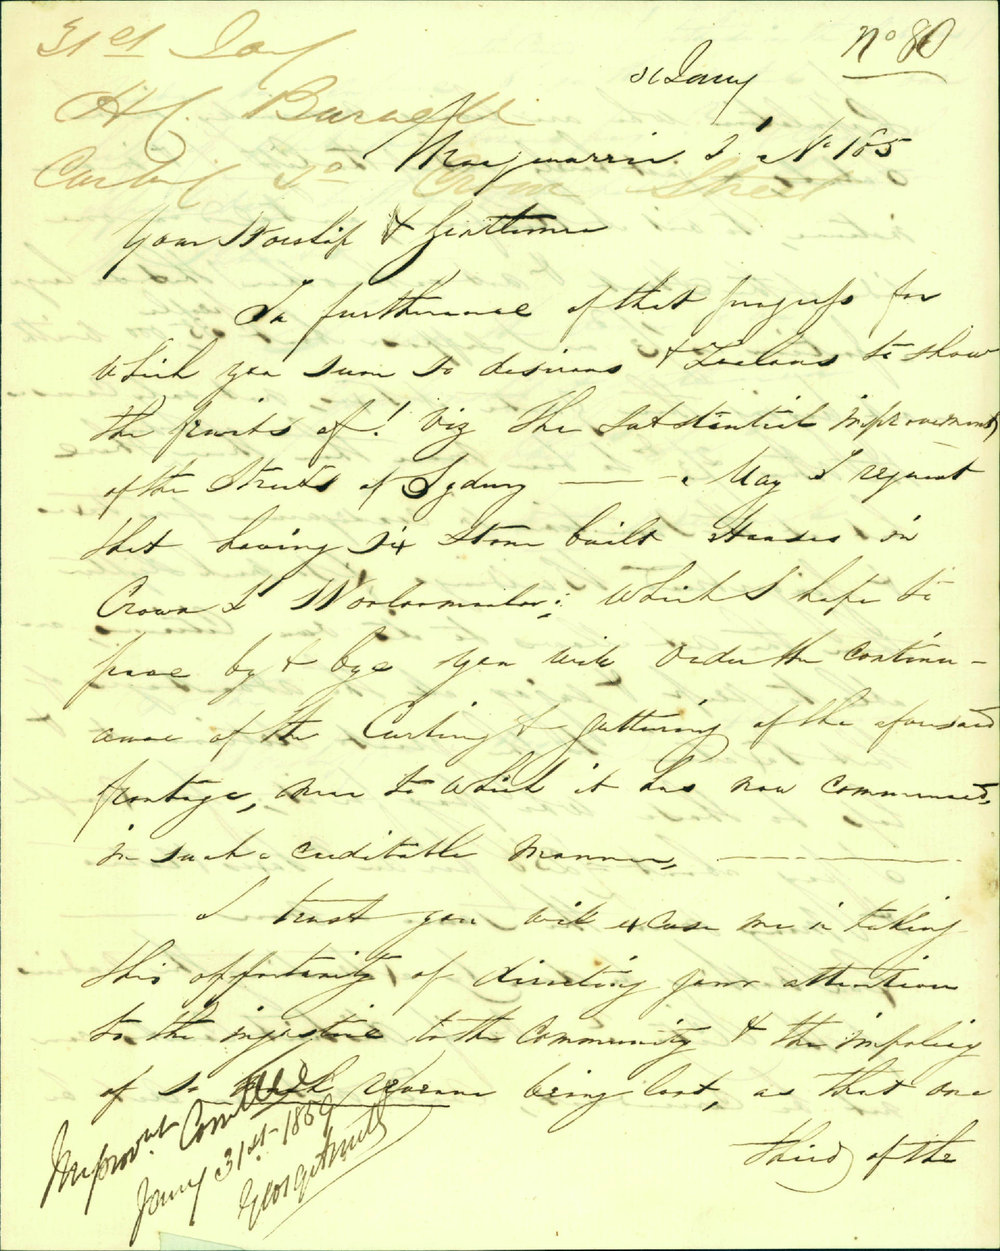 No 80
31st Jany
H C.
Curbing To Crown Street
31 Jany
Macquarrie St No 165
Your Worship & Gentlemen
In furtherance of that progress for
which you seem so desirous & Zealous to show
the fruits of! viz the substantial improvements
of the Streets of Sydney — May I request
that having six stone built Houses in
Crown St Woolloomooloo; which I hope to
prove by & bye you will order the continu-
ance of the Curbing & guttering of the aforesaid
frontage, near to which it has now commenced,
in such a creditable manner, —
I trust you will excuse me in taking
this opportunity of directing your attention
to the injustice to the Community & the impolicy
of so much revenue being lost, as that one
third of the
Improvnt Comittee
Jany 31st 1859
George Smith